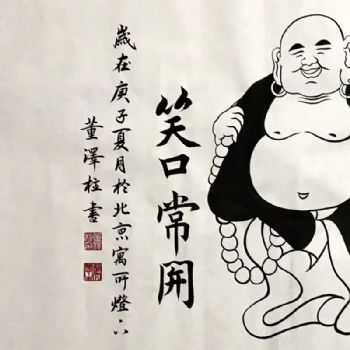 笑口常開
歲在庚子夏月於北京寓所燈下
董澤柱書